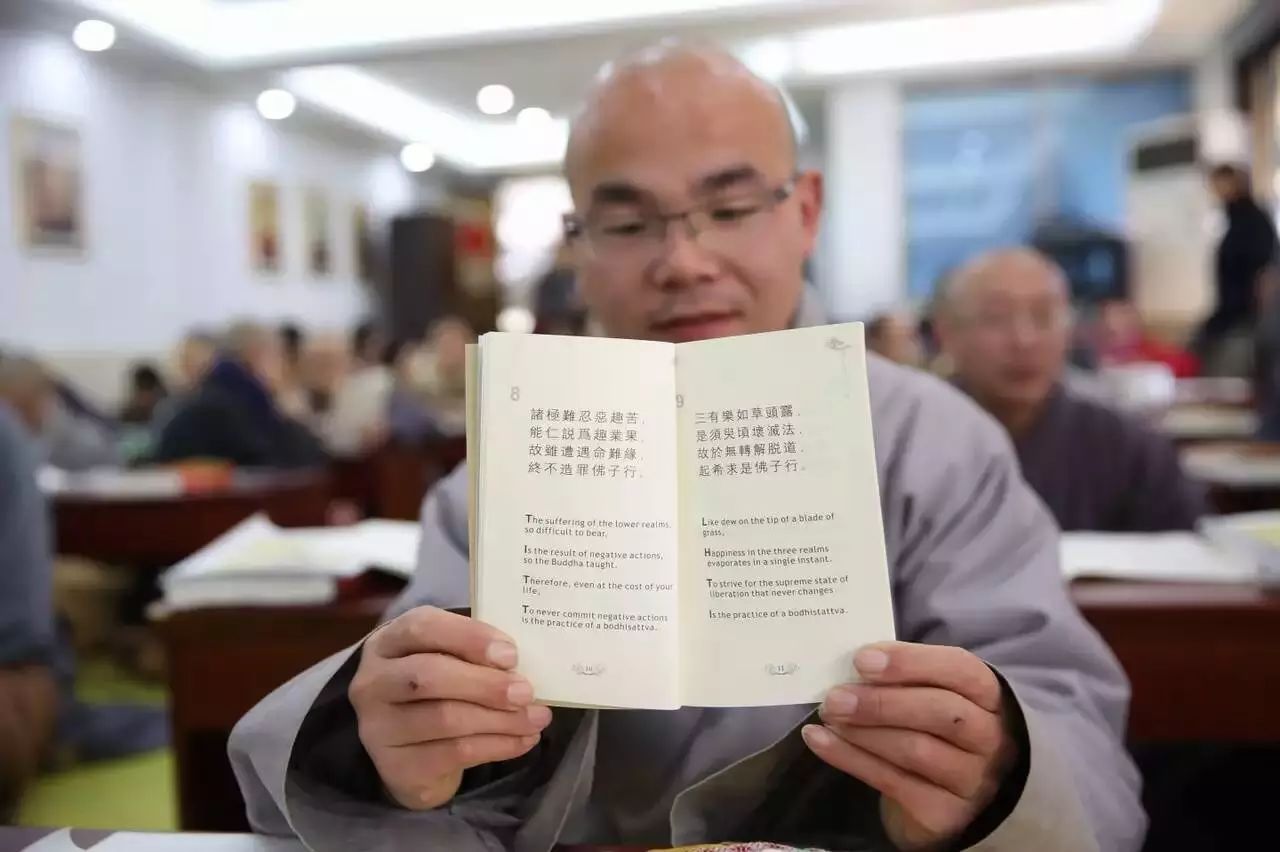 8
諸極難忍惡趣苦，
能仁説爲趣業果，
故雖遭遇命難緣，
終不造罪佛子行。
The suffering of the lower realms,
so difficult to bear,
Is the result of negative actions,
so the Buddha taught.
Therefore, even at the cost of your
life,
To never commit negative actions
is the practice of a bodhisattva.
10
9
三有樂如草頭露，
是須臾頃壞滅法，
故於無轉解脱道，
起希求是佛子行。
Like dew on the tip of a blade of
grass,
Happiness in the three realms
evaporates in a single instant.
To strive for the supreme state of
liberation that never changes
Is the practice of a bodhistattva.
11